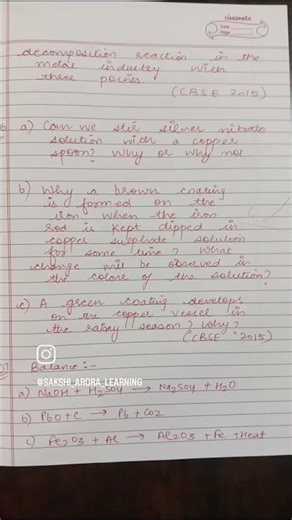 classmate
Date
Page
decomposition reaction in the
metal industry with
three points
(CBSE 2015)
a) Can we stir silver nitrate
solution with a copper
spoon? Why or why not
b) Why a brown coating
is formed on the
iron when the iron
rod is kept dipped in
copper sulphate solution
for some time? What
change will be observed in
the color of the solution?
c) A green coating develops
on the copper vessel in
the rainy season? Why?
(CBSE 2015)
Balance :-
@SAKSHI_ARORA_LEARNING
a) NaOH + H2SO4 → Na2SO4 + H2O
b) PbO + C → Pb + CO2
c) Fe2O3 + Al → Al2O3 + Fe + Heat